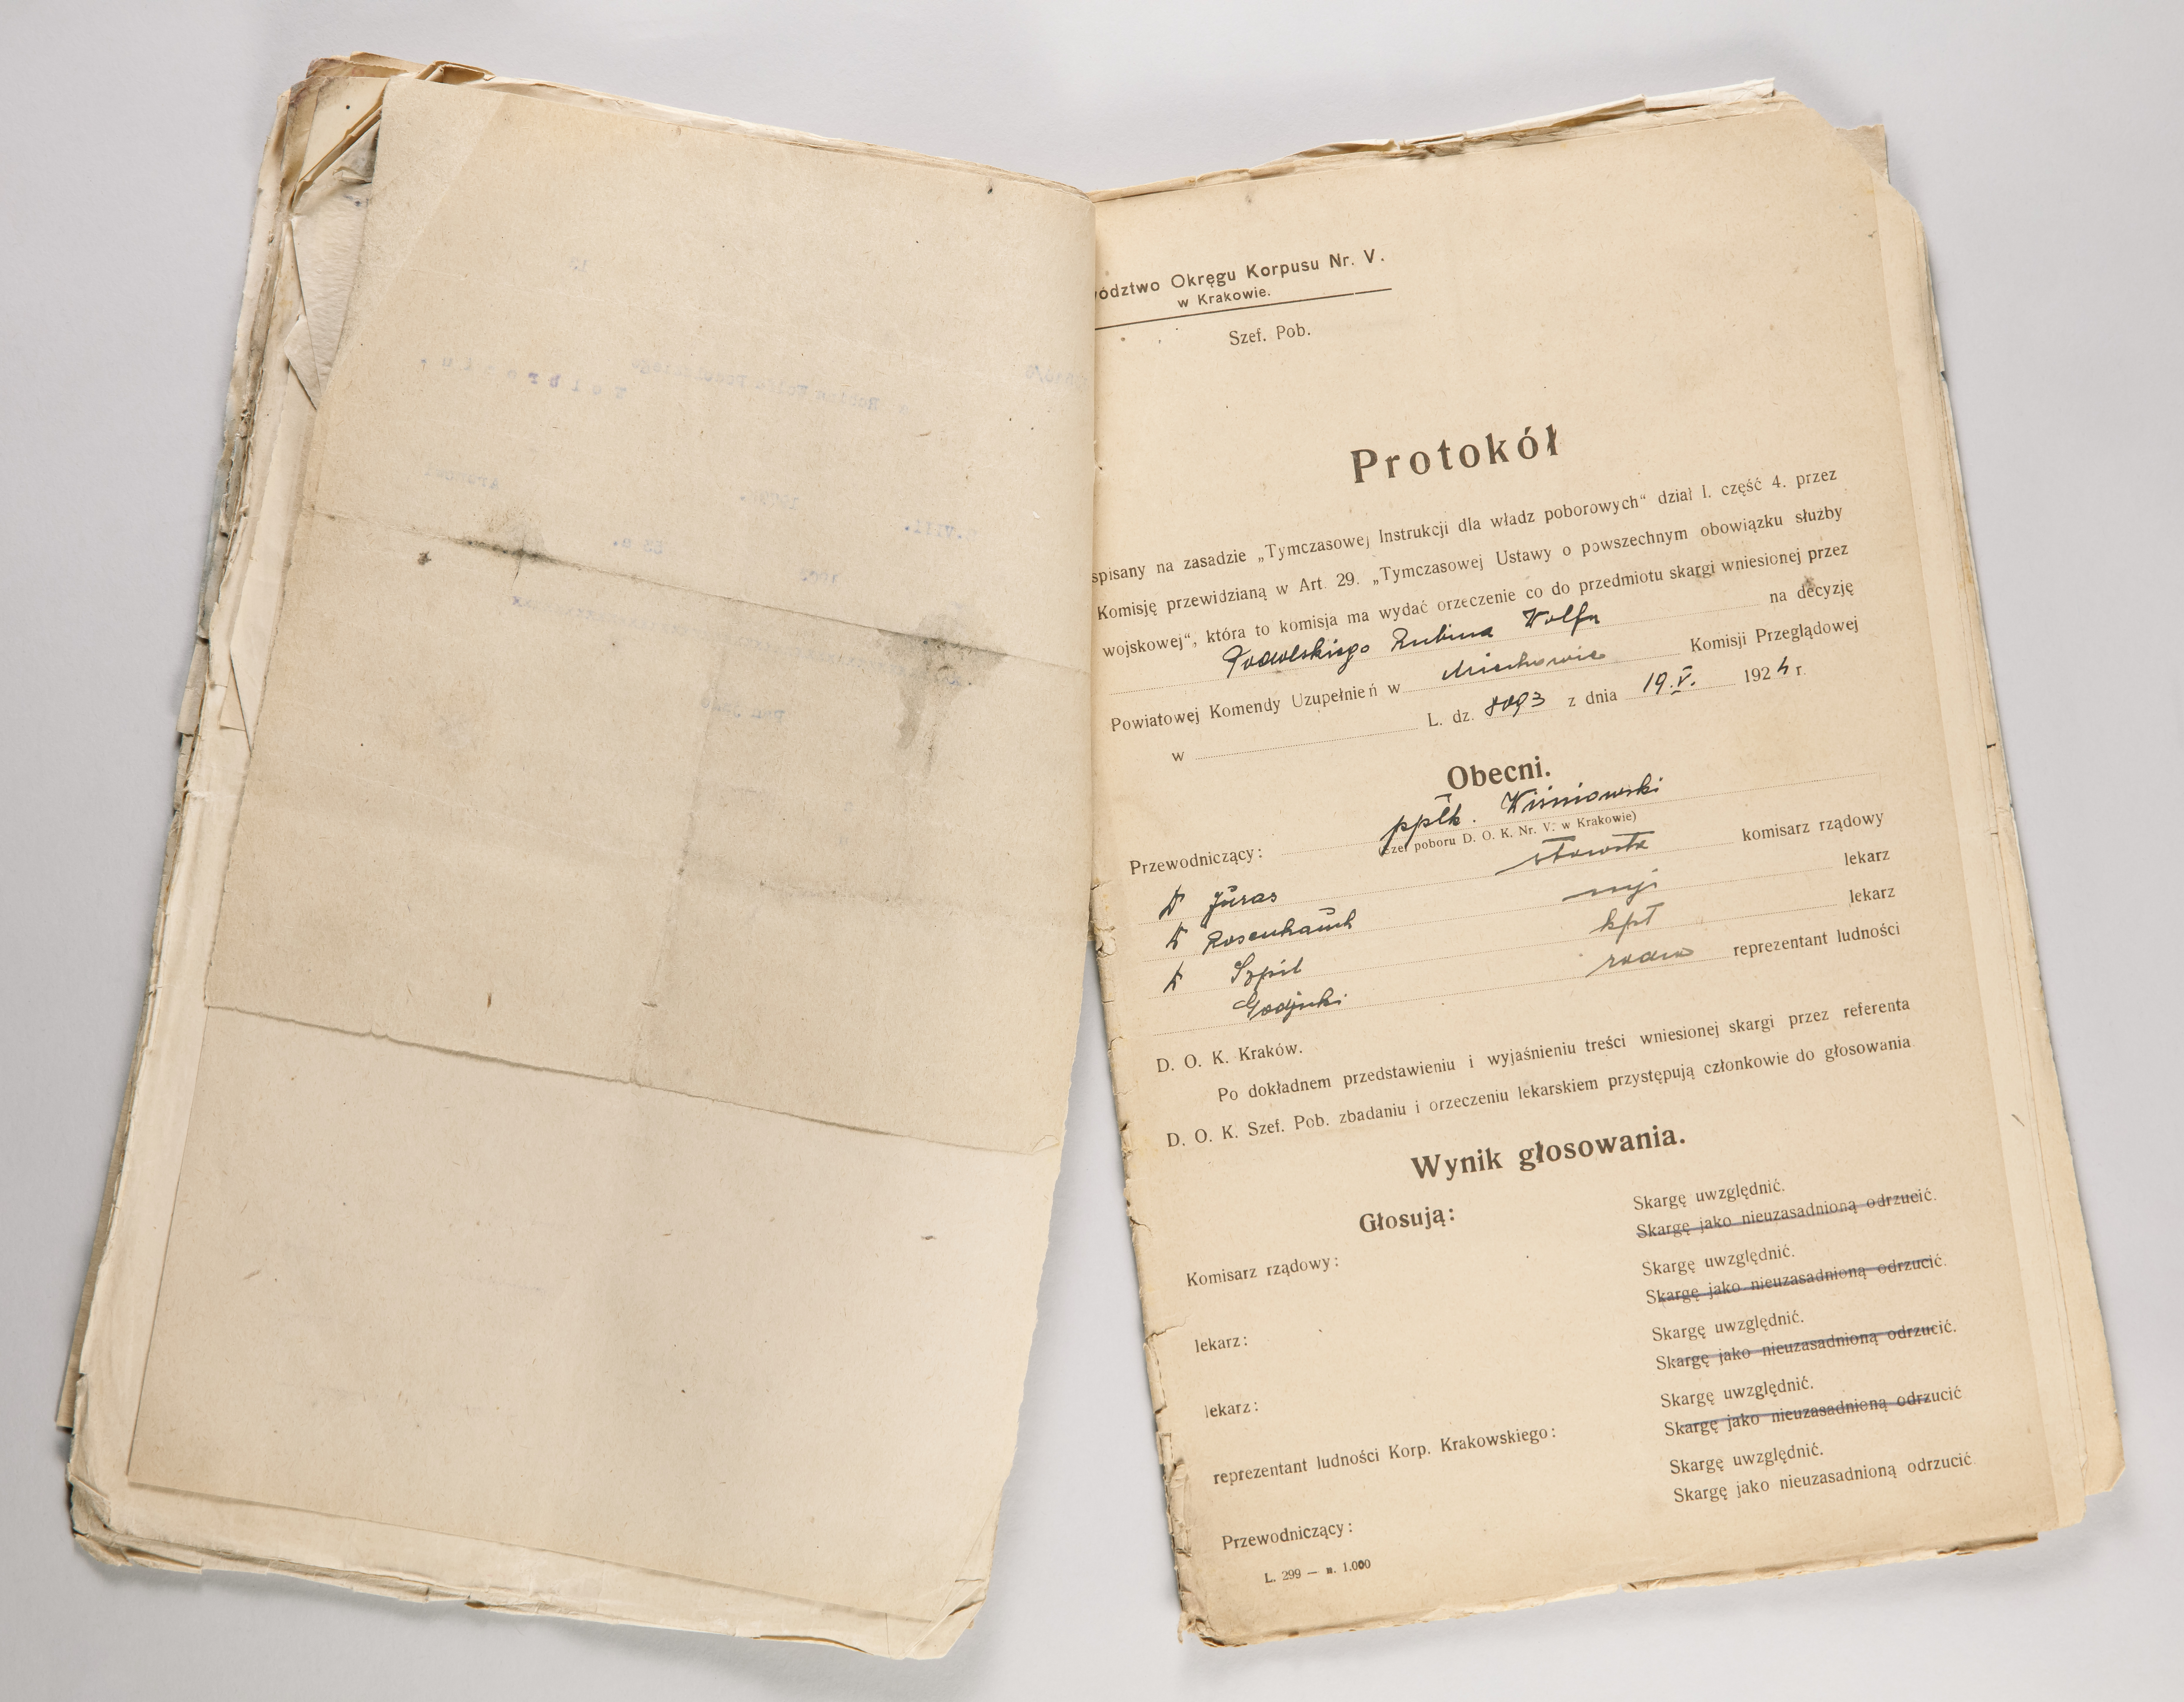 ództwo Okręgu Korpusu Nr. V.
w Krakowie.
Szef. Pob.
Protokół
spisany na zasadzie „Tymczasowej Instrukcji dla władz poborowych“ dział I. część 4. przez
Komisję przewidzianą w Art. 29. „Tymczasowej Ustawy o powszechnym obowiązku służby
wojskowej“, która to komisja ma wydać orzeczenie co do przedmiotu skargi wniesionej przez
Rubina Wolfa na decyzję
Powiatowej Komendy Uzupełnień w Miechowie Komisji Przeglądowej
w L. dz. z dnia 19.V. 1924 r.
Obecni.
Przewodniczący: ppłk. Wiśniowski
(szef poboru D. O. K. Nr. V. w Krakowie)
Dr Juras starosta komisarz rządowy
Dr lekarz
Dr Szpil kpt lekarz
reprezentant ludności
D. O. K. Kraków.
Po dokładnem przedstawieniu i wyjaśnieniu treści wniesionej skargi przez referenta
D. O. K. Szef. Pob. zbadaniu i orzeczeniu lekarskiem przystępują członkowie do głosowania
Wynik głosowania.
Głosują:
Komisarz rządowy: Skargę uwzględnić.
Skargę jako nieuzasadnioną odrzucić.
lekarz: Skargę uwzględnić.
Skargę jako nieuzasadnioną odrzucić.
lekarz: Skargę uwzględnić.
Skargę jako nieuzasadnioną odrzucić.
reprezentant ludności Korp. Krakowskiego: Skargę uwzględnić.
Skargę jako nieuzasadnioną odrzucić
Przewodniczący: Skargę uwzględnić.
Skargę jako nieuzasadnioną odrzucić
L. 299 — n. 1.000